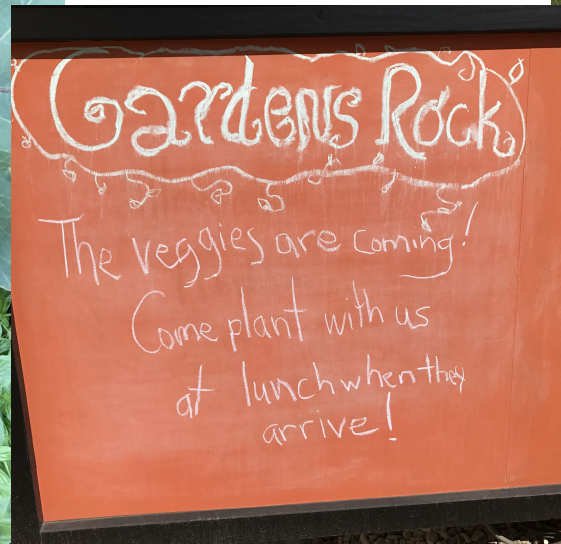 Gardens Rock
The veggies are coming!
Come plant with us
at lunch when they
arrive!